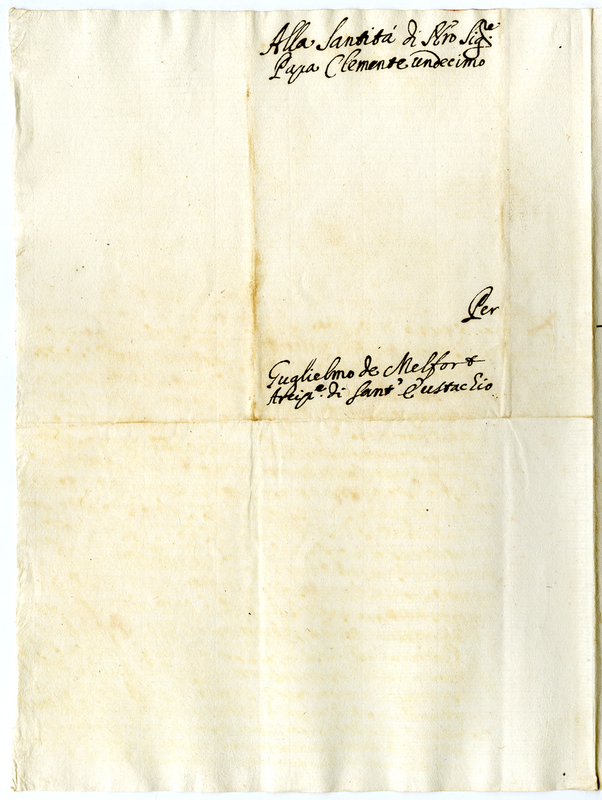 Alla Santitá di Nro Sigre
Papa Clemente undecimo
Per
Guglielmo de Melfort
Arcipe. di Sant' Eustachio